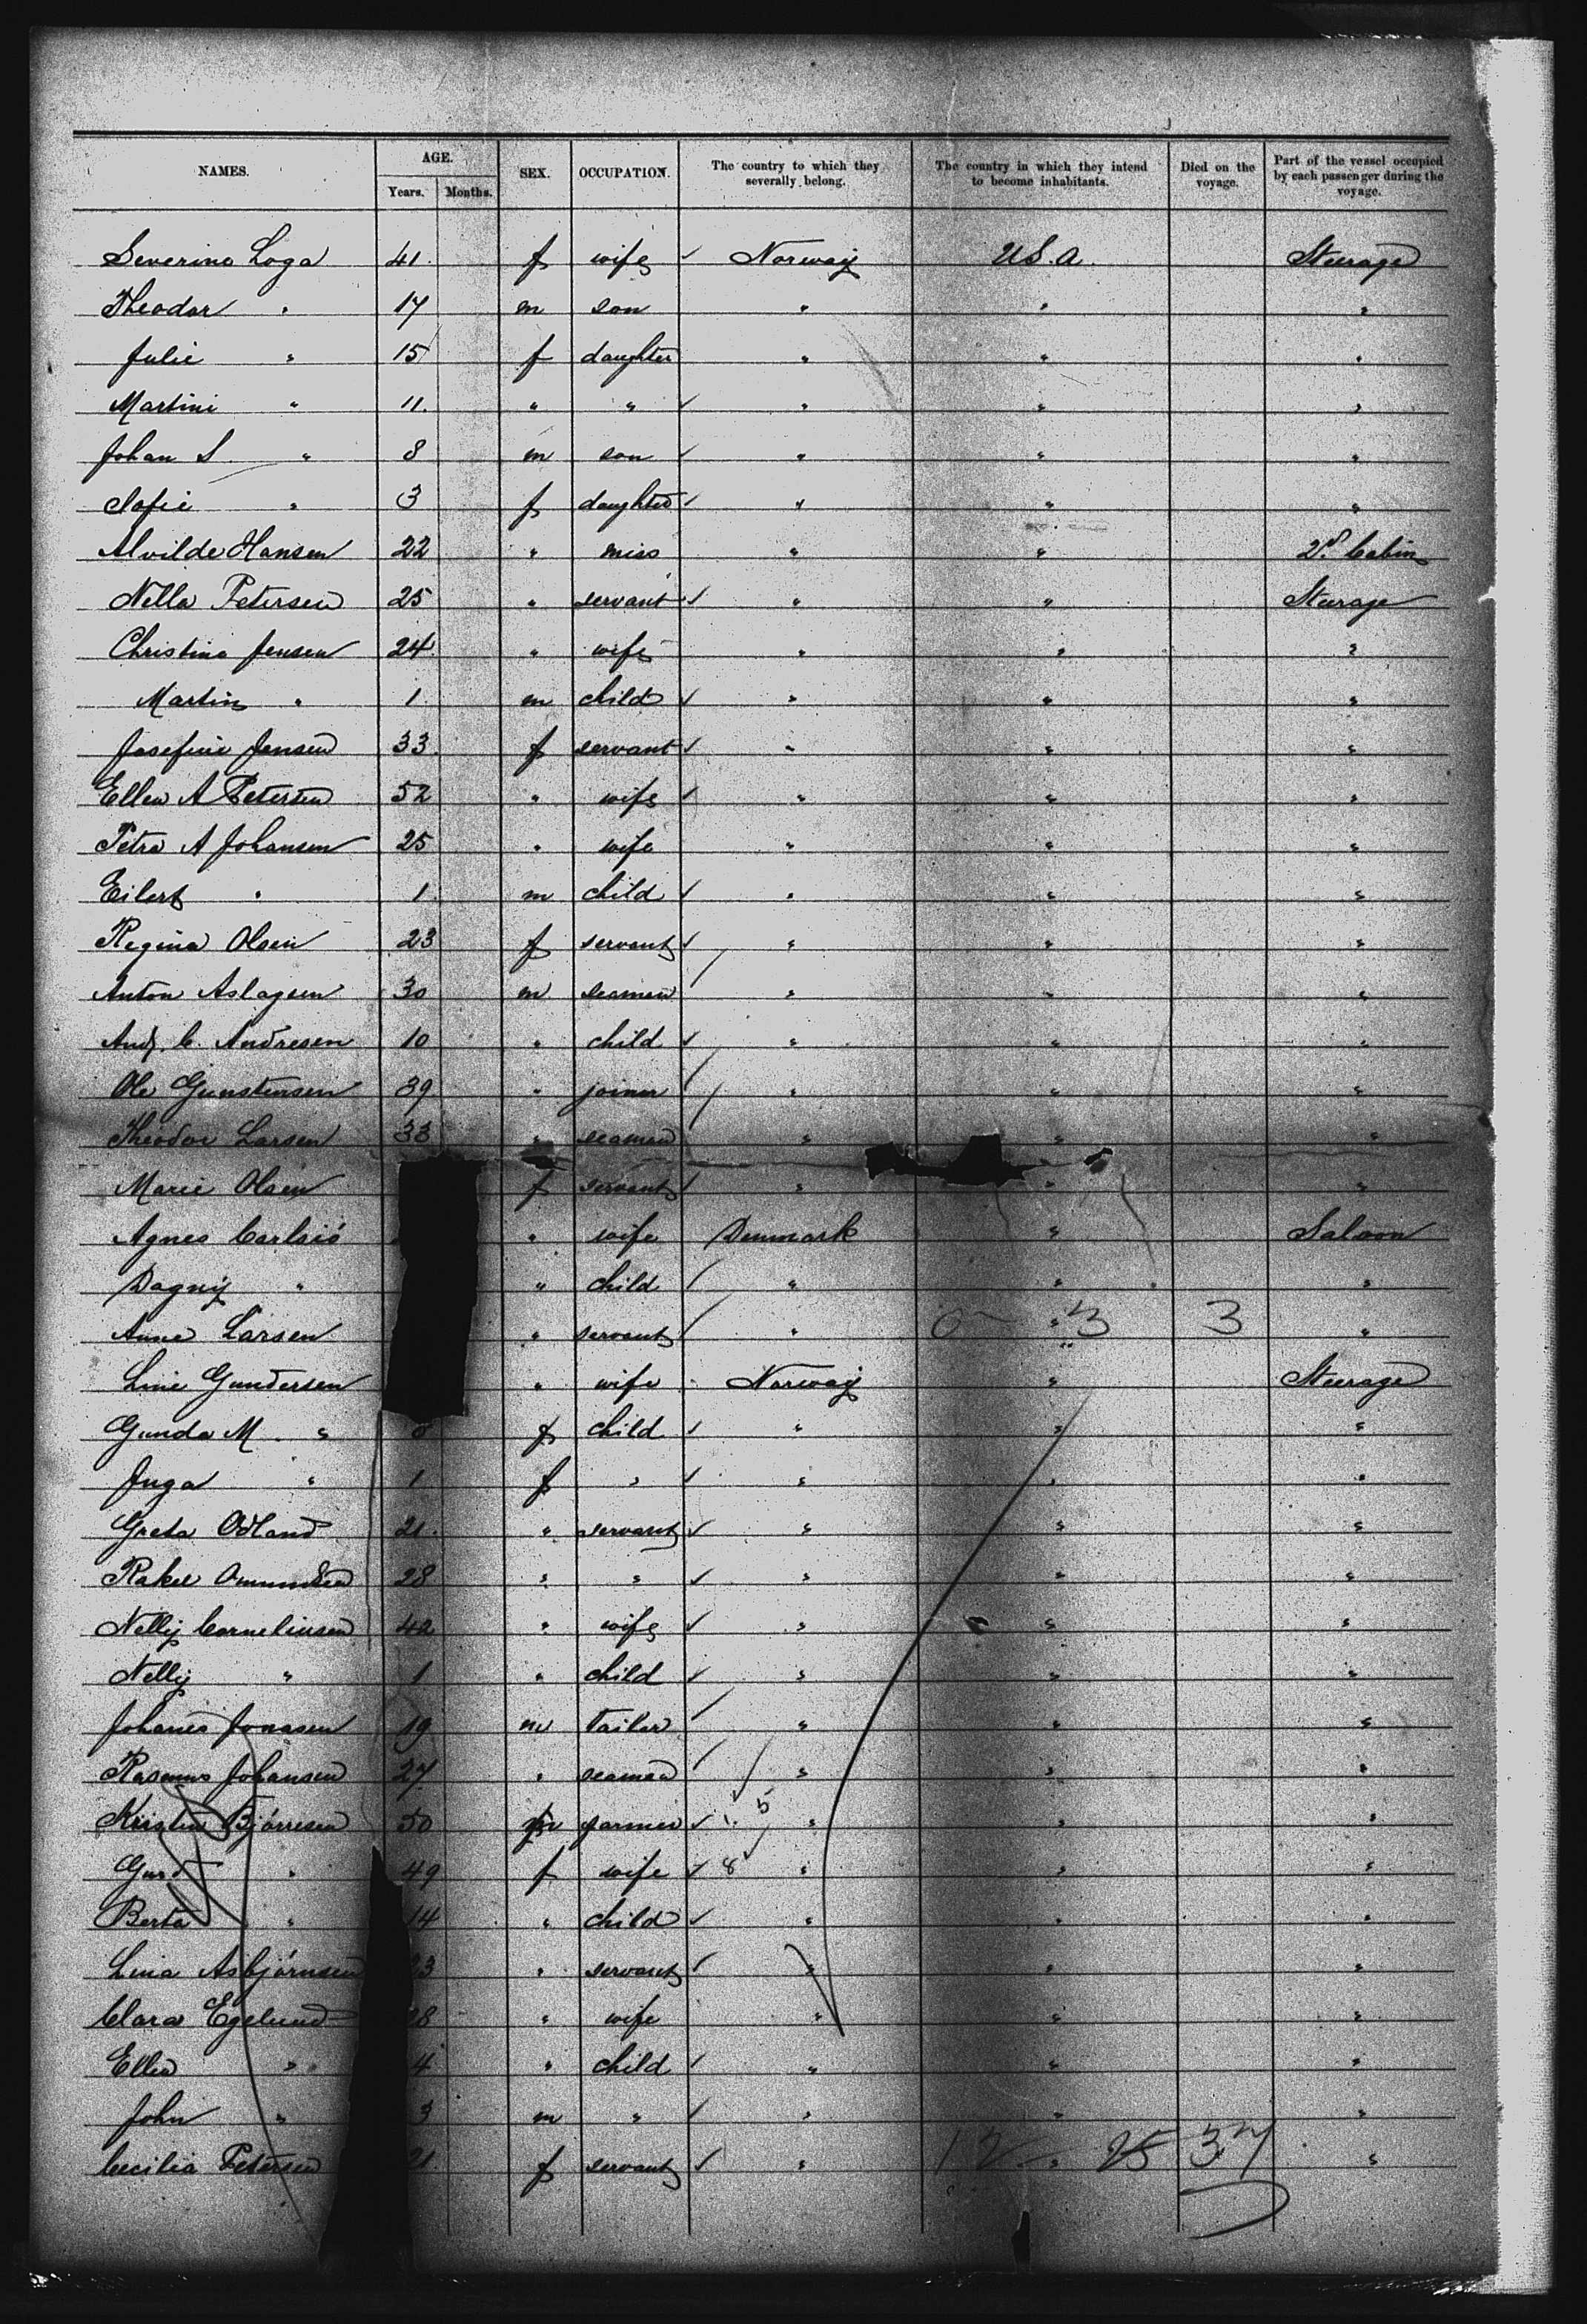 NAMES. AGE. Years. Months. SEX. OCCUPATION. The country to which they severally belong. The country in which they intend to become inhabitants. Died on the voyage. Part of the vessel occupied by each passenger during the voyage.
Severine Loga 41 f wife Norway U.S.A. Steerage
Theodor " 17 m son " " "
Julie " 15 f daughter " " "
Martini " 11. " " " " "
Johan S. " 8 m son " " "
Sofie " 3 f daughter " " "
Alvilde Hansen 22 " miss " " 2d. Cabin
Nella Petersen 25 " servant " " Steerage
Christine Jensen 24. " wife " " "
Martin " 1. m child " " "
Josefine Jensen 33. f servant " " "
Ellen A Petersen 52 " wife " " "
Petra A Johansen 25 " wife " " "
Eilert " 1. m child " " "
Regina Olsen 23 f servant " " "
Anton Aslagsen 30 m seaman " " "
And. C. Andresen 10 " child " " "
Ole Gunstensen 39 " joiner " " "
Theodor Larsen 33 " seaman " " "
Marie Olsen f servant " " "
Agnes " wife Denmark " Saloon
Dagny " " child " " "
Anne Larsen " servant " 0 " 3 3 "
Line Gundersen " wife Norway " Steerage
Gunda M. " f child " " "
Inga " 1 f " " " "
Greta Odland 21. " servant " " "
Rakel 28 " " " " "
Nelly Corneliusen 42 " wife " " "
Nelly " 1 " child " " "
Johanes Jonasen 19 m Tailor " " "
Rasmus Johansen 27 " seaman " " "
Kristen Bjørresen 50 m farmer 1. 5 " " "
" 49 f wife 8 " " "
Berta " 14 " child " " "
Lina Asbjørnsen 23 " servant " " "
Clara Egelund 28 " wife " " "
Ellen " 4 " child " " "
John " 3 m " " " "
Cecilia Petersen 21. f servant " 12 " 25 37 "